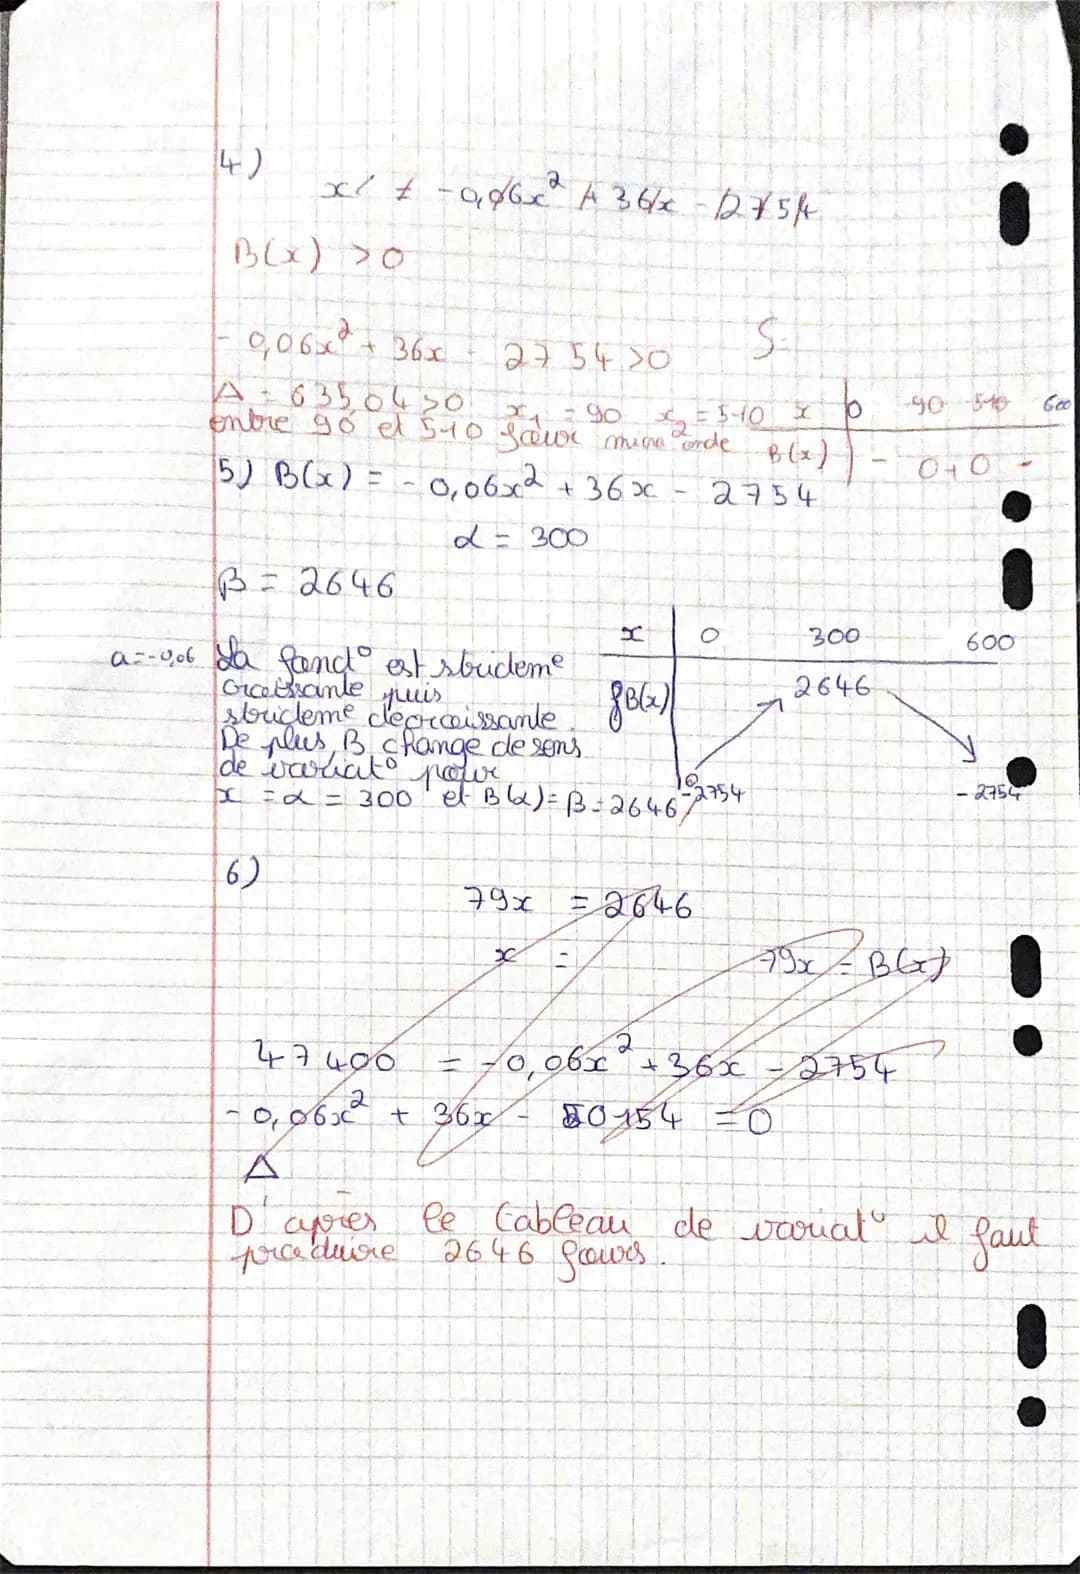 4)
x
- 0,06x² + 36x - 2754
B(x) > 0
- 0,06x² + 36x - 2754 > 0 S:
Δ = 635,04 > 0 x₁ = 90 x₂ = 510
entre 90 et 510
x 0 90 510 600
B(x) - 0 + 0 -
5) B(x) = - 0,06x² + 36x - 2754
α = 300
β = 2646
a = -0,06
La fonct° est stricteme
croissante puis
stricteme decroissante.
De plus, B change de sens
de variat° pour
x = α = 300 et B(α) = β = 2646
x 0 300 600
B(x) 2646
-2754 -2754
6)
79x = 2646
x =
79x = B(x)
47400 = -0,06x² + 36x - 2754
-0,06x² + 36x - 50154 = 0
Δ
D'après le tableau de variat° il faut
produire 2646 fours.